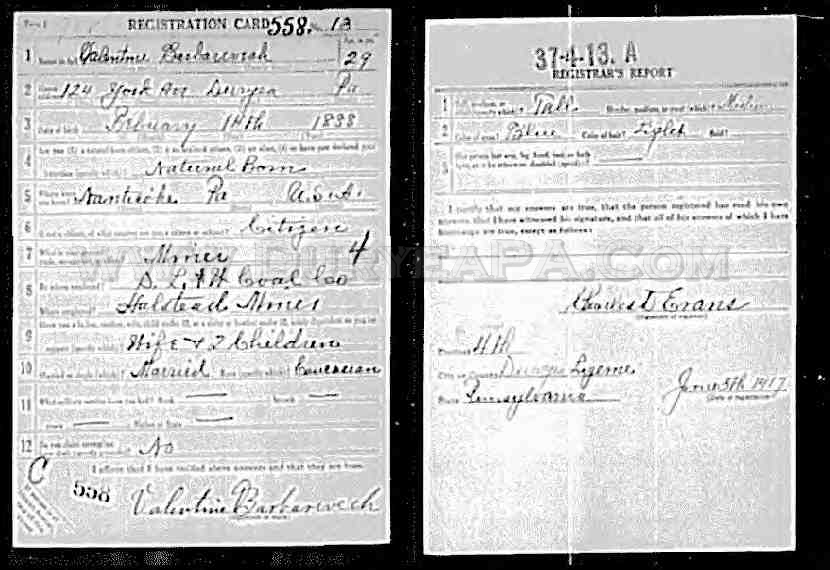 Form 1 REGISTRATION CARD 558 No. 13
1 Name in full Valentine Barbarevech Age, in yrs. 29
2 Home address 124 York Av. Duryea Pa
3 Date of birth February 14th 1888
4 Are you (1) a natural-born citizen, (2) a naturalized citizen, (3) an alien, (4) or have you declared your
intention (specify which)? Natural Born
5 Where were you born? Nanticoke Pa U.S.A.
6 If not a citizen, of what country are you a citizen or subject? Citizen
7 What is your present trade, occupation, or office? Miner 4
8 By whom employed? D. L. & W Coal Co
Where employed? Halstead Mines
9 Have you a father, mother, wife, child under 12, or a sister or brother under 12, solely dependent on you for
support (specify which)? Wife & 2 Children
10 Married or single (which)? Married Race (specify which)? Caucasian
11 What military service have you had? Rank — ; branch —
years — ; Nation or State —
12 Do you claim exemption from draft (specify grounds)? No
I affirm that I have verified above answers and that they are true.
C
558
Valentine Barbarevech
(Signature or mark)
37-4-13. A
REGISTRAR'S REPORT
1 Tall, medium, or short (specify which)? Tall Slender, medium, or stout (which)? Medium
2 Color of eyes? Blue Color of hair? Light Bald?
3 Has person lost arm, leg, hand, foot, or both
eyes, or is he otherwise disabled (specify)?
I certify that my answers are true, that the person registered has read his own
answers, that I have witnessed his signature, and that all of his answers of which I have
knowledge are true, except as follows:
WWW.DURYEAPA.COM
Evans
(Signature of registrar)
Precinct 4th
City or County Duryea Luzerne
State Pennsylvania June 5th 1917
(Date of registration)